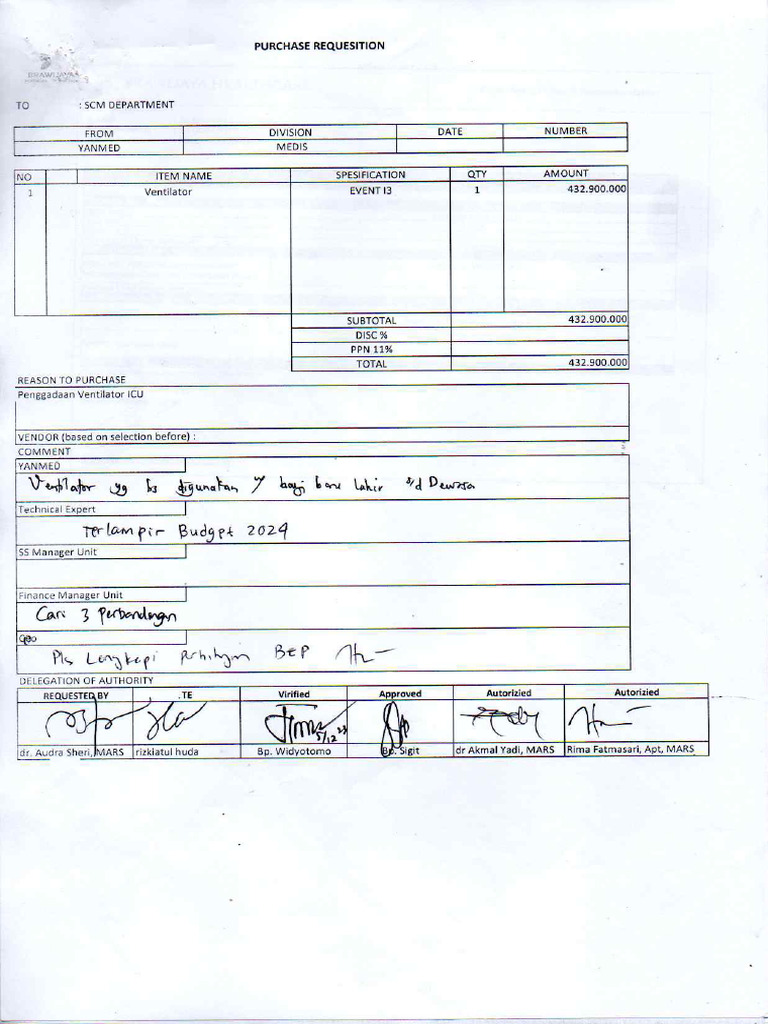 PURCHASE REQUESITION
BRAWIJAYA
TO : SCM DEPARTMENT
FROM DIVISION DATE NUMBER
YANMED MEDIS
NO ITEM NAME SPESIFICATION QTY AMOUNT
1 Ventilator EVENT I3 1 432.900.000
SUBTOTAL 432.900.000
DISC %
PPN 11%
TOTAL 432.900.000
REASON TO PURCHASE
Penggadaan Ventilator ICU
VENDOR (based on selection before) :
COMMENT
YANMED
Ventilator yg bs digunakan u/ bayi baru lahir s/d Dewasa
Technical Expert
Terlampir Budget 2024
SS Manager Unit
Finance Manager Unit
Cari 3 Perbandingan
Pls Lengkapi BEP
DELEGATION OF AUTHORITY
REQUESTED BY .TE Virified Approved Autorizied Autorizied
5/12 23
dr. Audra Sheri, MARS rizkiatul huda Bp. Widyotomo Bp. Sigit dr Akmal Yadi, MARS Rima Fatmasari, Apt, MARS